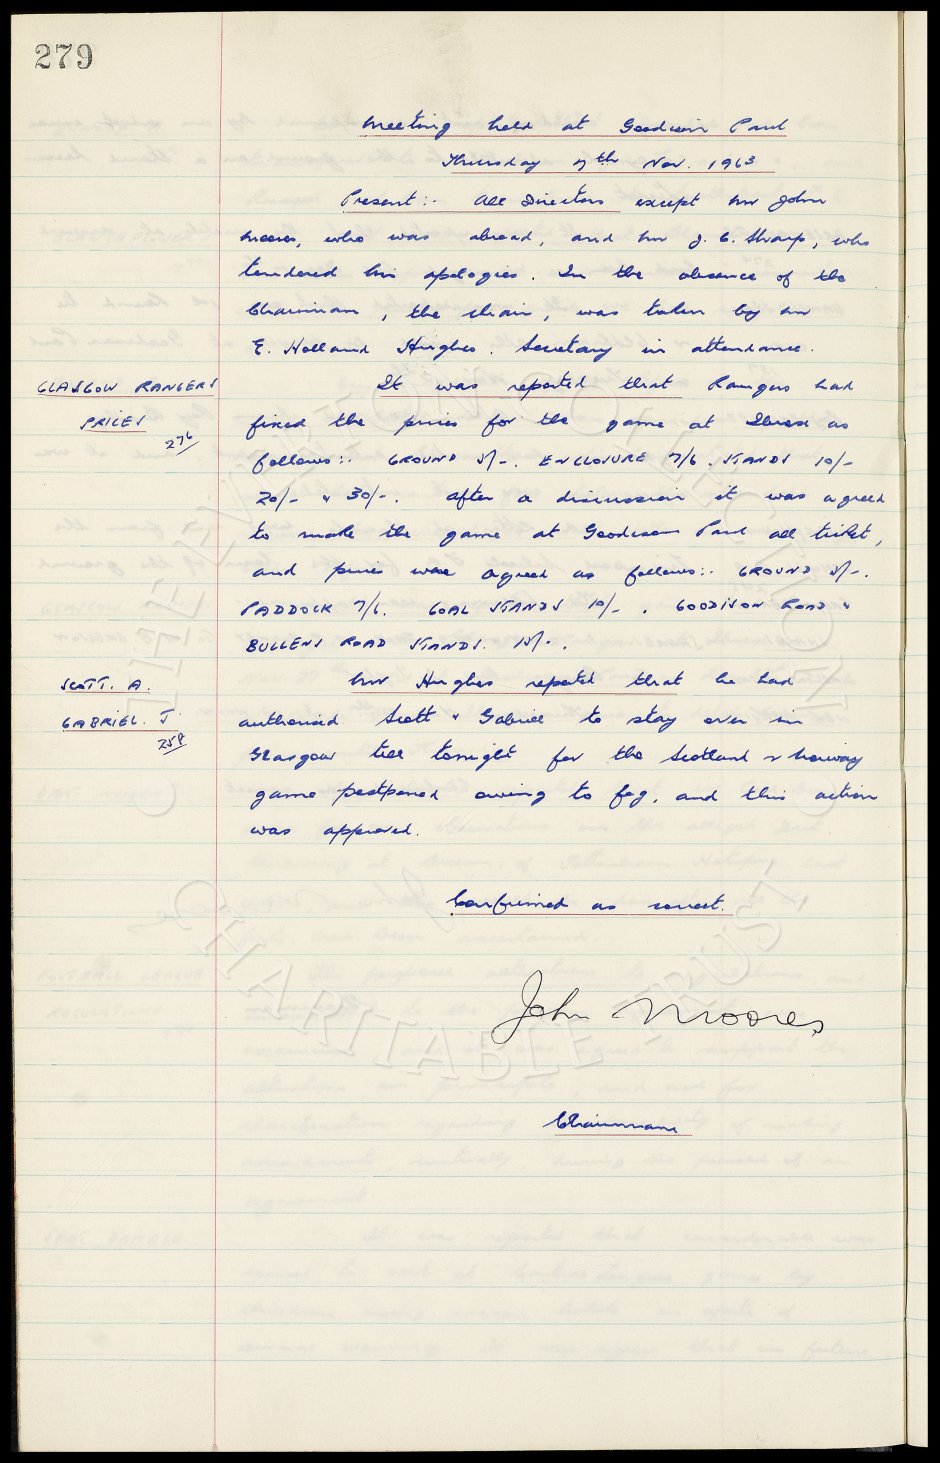 279
Meeting held at Goodison Park
Thursday 7th Nov. 1963
Present:- All Directors except Mr John
Moores, who was abroad, and Mr J. C. Sharp, who
tendered his apologies. In the absence of the
Chairman, the chair, was taken by Mr
E. Holland Hughes. Secretary in attendance.
GLASGOW RANGERS It was reported that Rangers had
PRICES fixed the prices for the game at Ibrox as
276 follows:- GROUND 5/-. ENCLOSURE 7/6. STANDS 10/-
20/- & 30/-. After a discussion it was agreed
to make the game at Goodison Park all ticket,
and prices were agreed as follows:- GROUND 5/-.
PADDOCK 7/6. GOAL STANDS 10/-. GOODISON ROAD &
BULLENS ROAD STANDS. 15/-.
SCOTT. A. Mr Hughes reported that he had
GABRIEL. J. authorised Scott & Gabriel to stay over in
259 Glasgow till tonight for the Scotland v Norway
game postponed owing to fog, and this action
was approved.
Confirmed as correct.
John Moores
Chairman
THE EVERTON COLLECTION
CHARITABLE TRUST